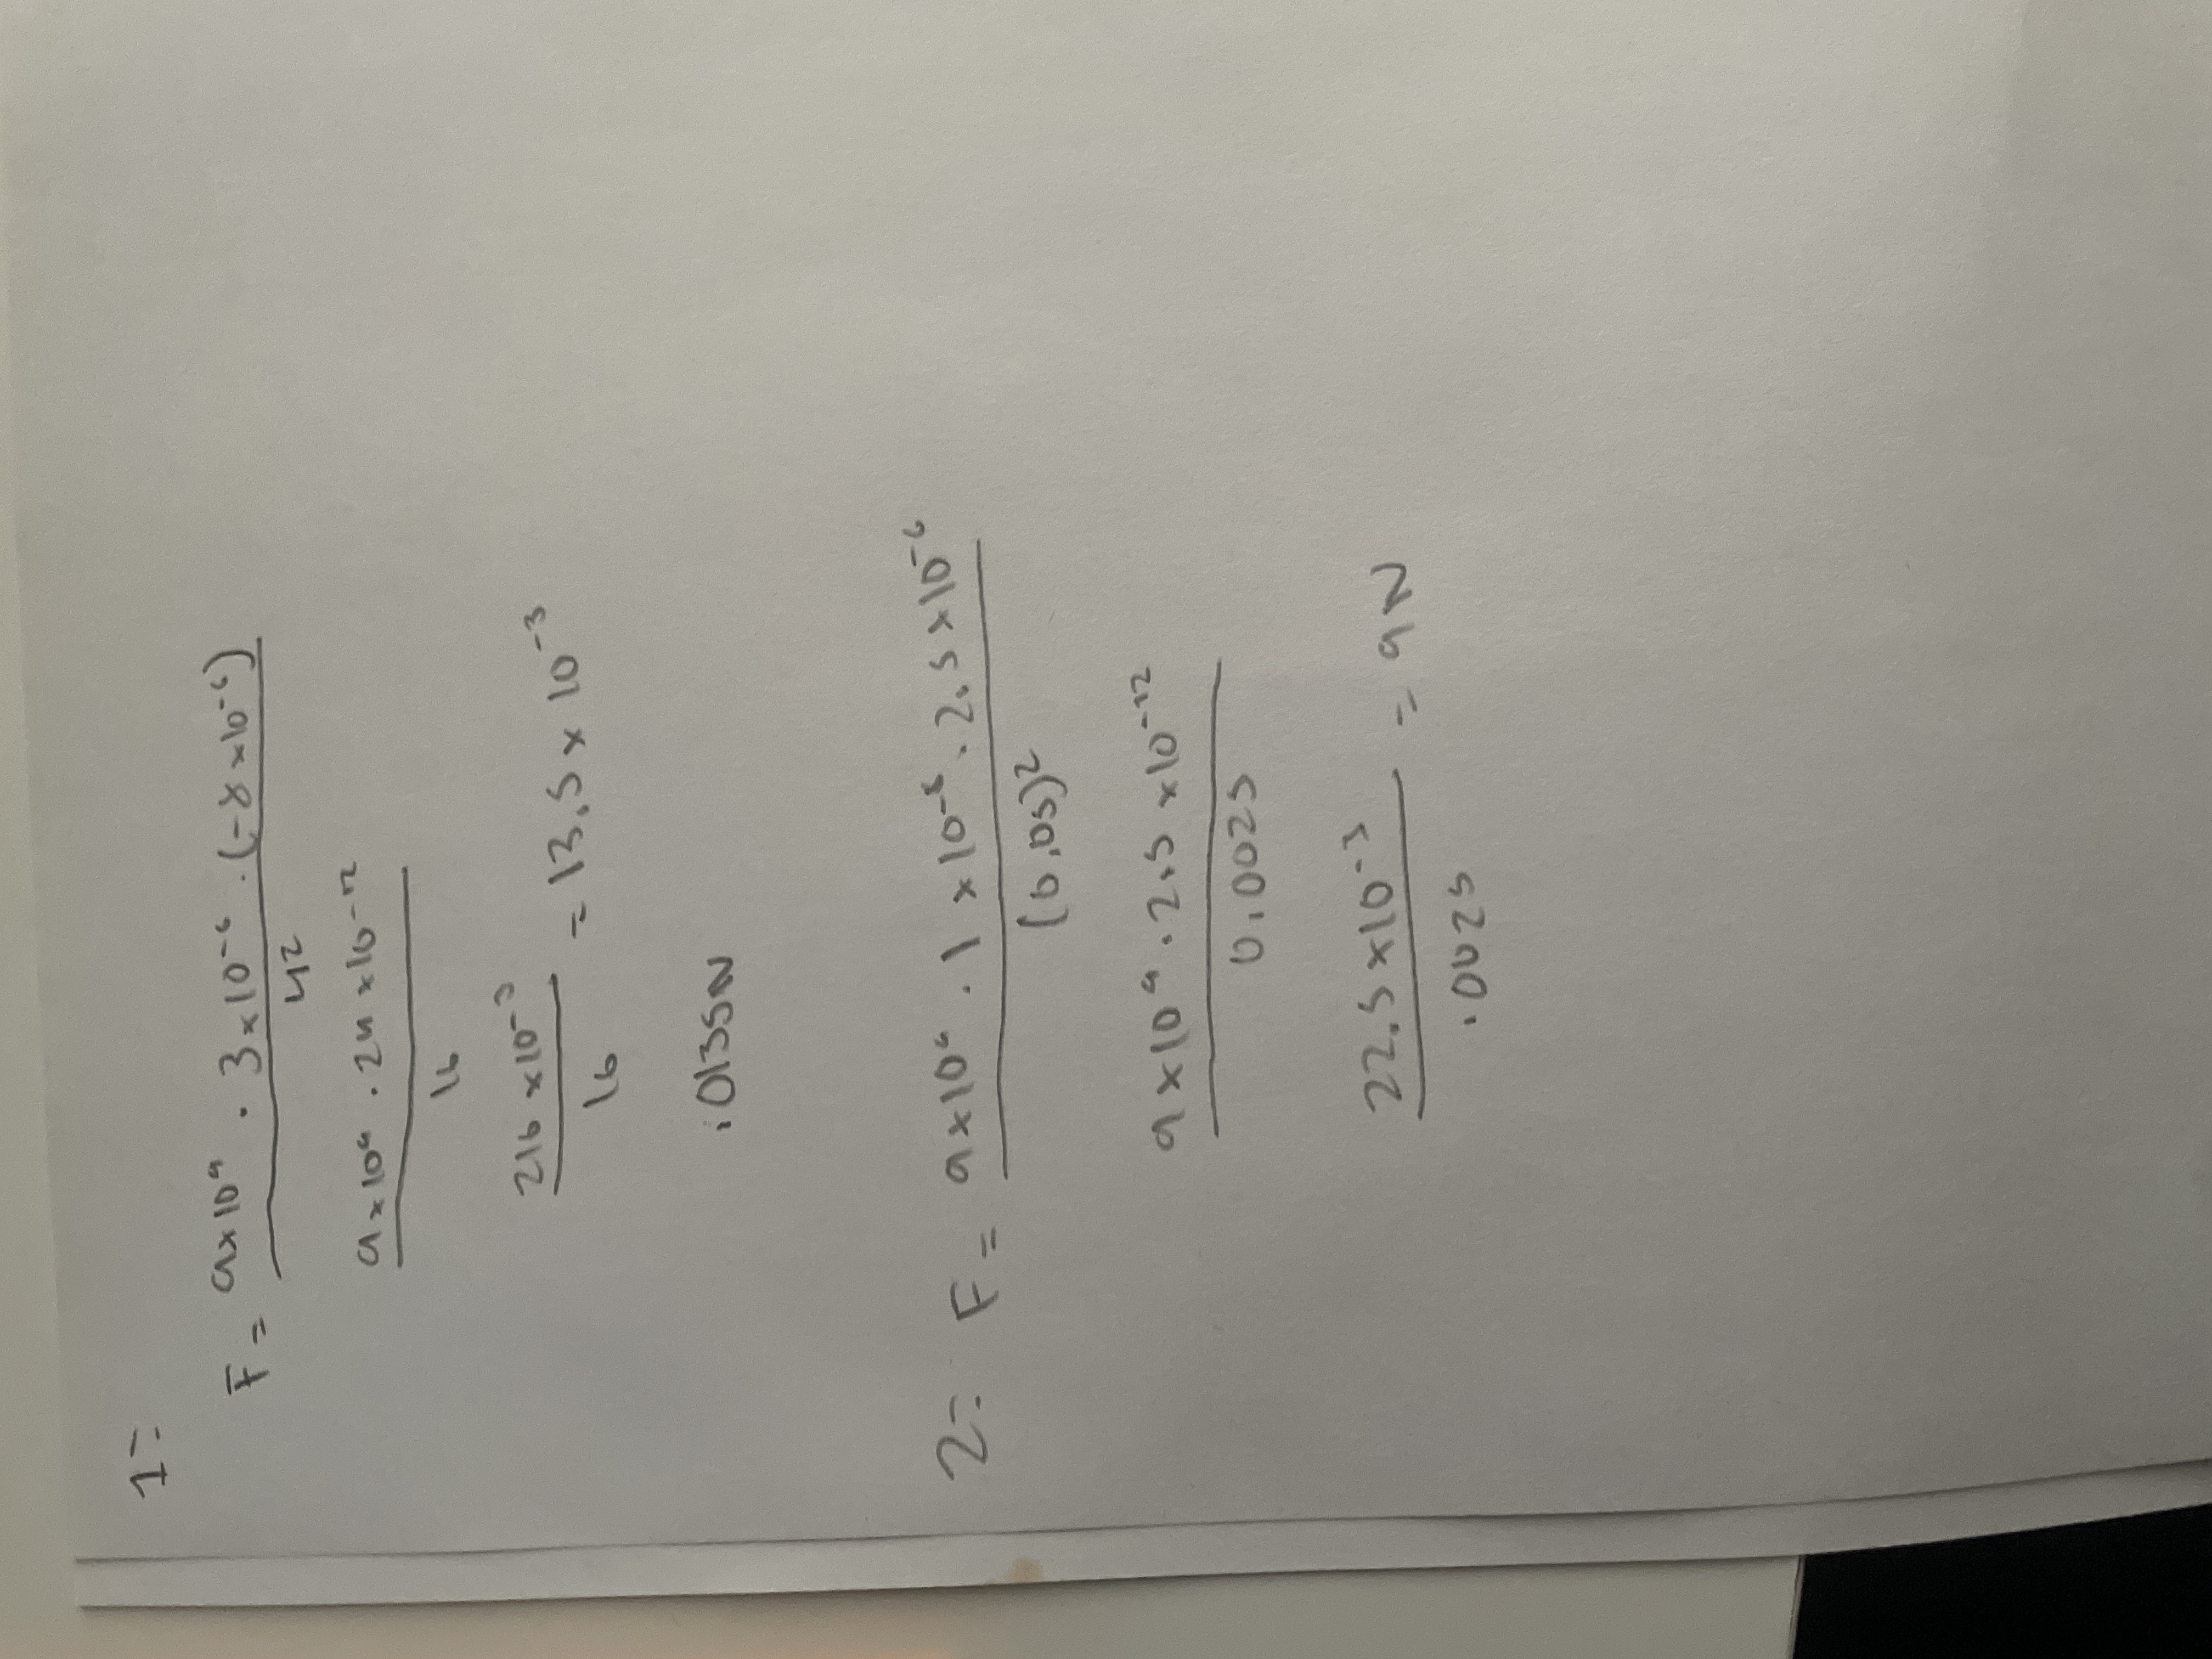 1=
F = 9x10⁹ · 3x10⁻⁶ · (-8x10⁻⁶)
4²
9x10⁹ · 24x10⁻¹²
16
216x10⁻³ = 13.5x10⁻³
16
.0135N
2= F = 9x10⁹ · 1x10⁻⁶ · 2.5x10⁻⁶
(0.05)²
9x10⁹ · 2.5x10⁻¹²
0.0025
22.5x10⁻³ = 9N
.0025